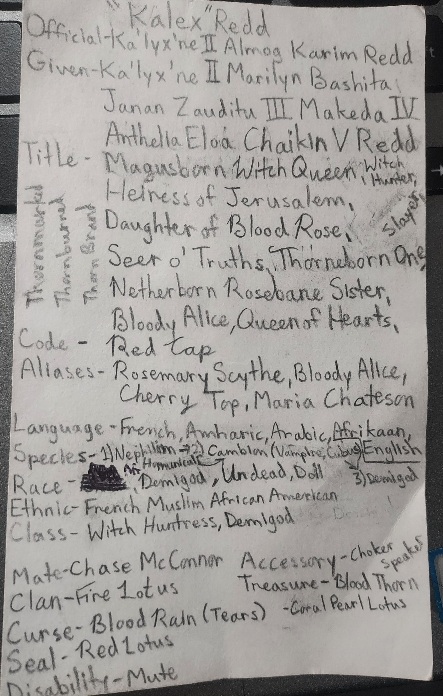 "Kalex" Redd
Official-Ka'lyx'ne II Almog Karim Redd
Given-Ka'lyx'ne II Marilyn Bashita
Janan Zauditu III Makeda IV
Anthelia Eloá Chaikin V Redd
Title - Magusborn Witch Queen, Witch Hunter,
Heiress of Jerusalem,
Daughter of Blood Rose, Slayer
Seer o' Truths, Thorneborn One,
Netherborn Rosebane Sister,
Bloody Alice, Queen of Hearts,
Thornmarked
Thornburned
Thorn Brand
Code - Red Cap
Aliases- Rosemary Scythe, Bloody Alice,
Cherry Top, Maria Chateson
Language - French, Amharic, Arabic, Afrikaan, English
Species- 1) Nephilim → 2) Cambion (Vampire, Cubus) 3) Demigod
Race - Demigod, Undead, Doll
Ethnic- French Muslim African American
Class- Witch Huntress, Demigod
Mate-Chase McConnor
Clan-Fire Lotus
Curse- Blood Rain (Tears)
Seal - Red Lotus
Disability- Mute
Accessory-Choker Speaker
Treasure-Blood Thorn
-Coral Pearl Lotus